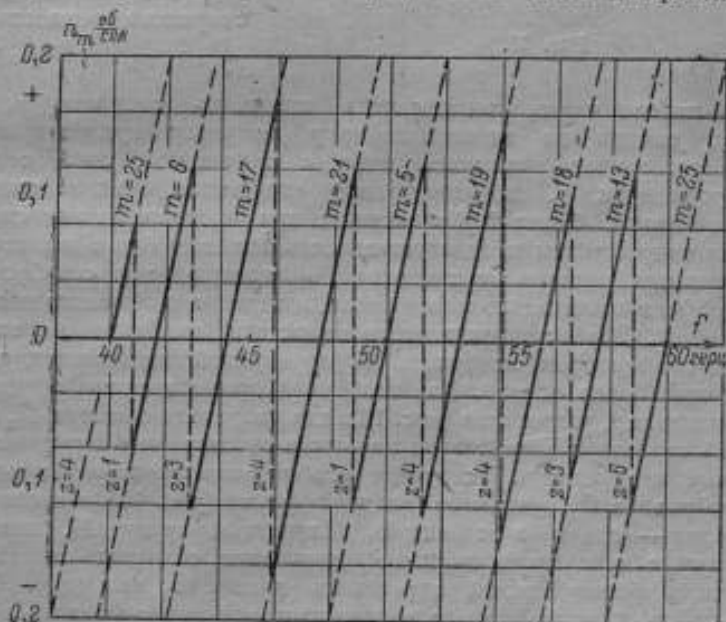 n m об/сек
0,2
+
0,1
m=25
m=6
m=17
m=21
m=5
m=19
m=18
m=13
m=25
0
40
45
50
55
60 герц
f
0,1
z=4
z=1
z=3
z=4
z=1
z=4
z=4
z=3
z=6
−
0,2